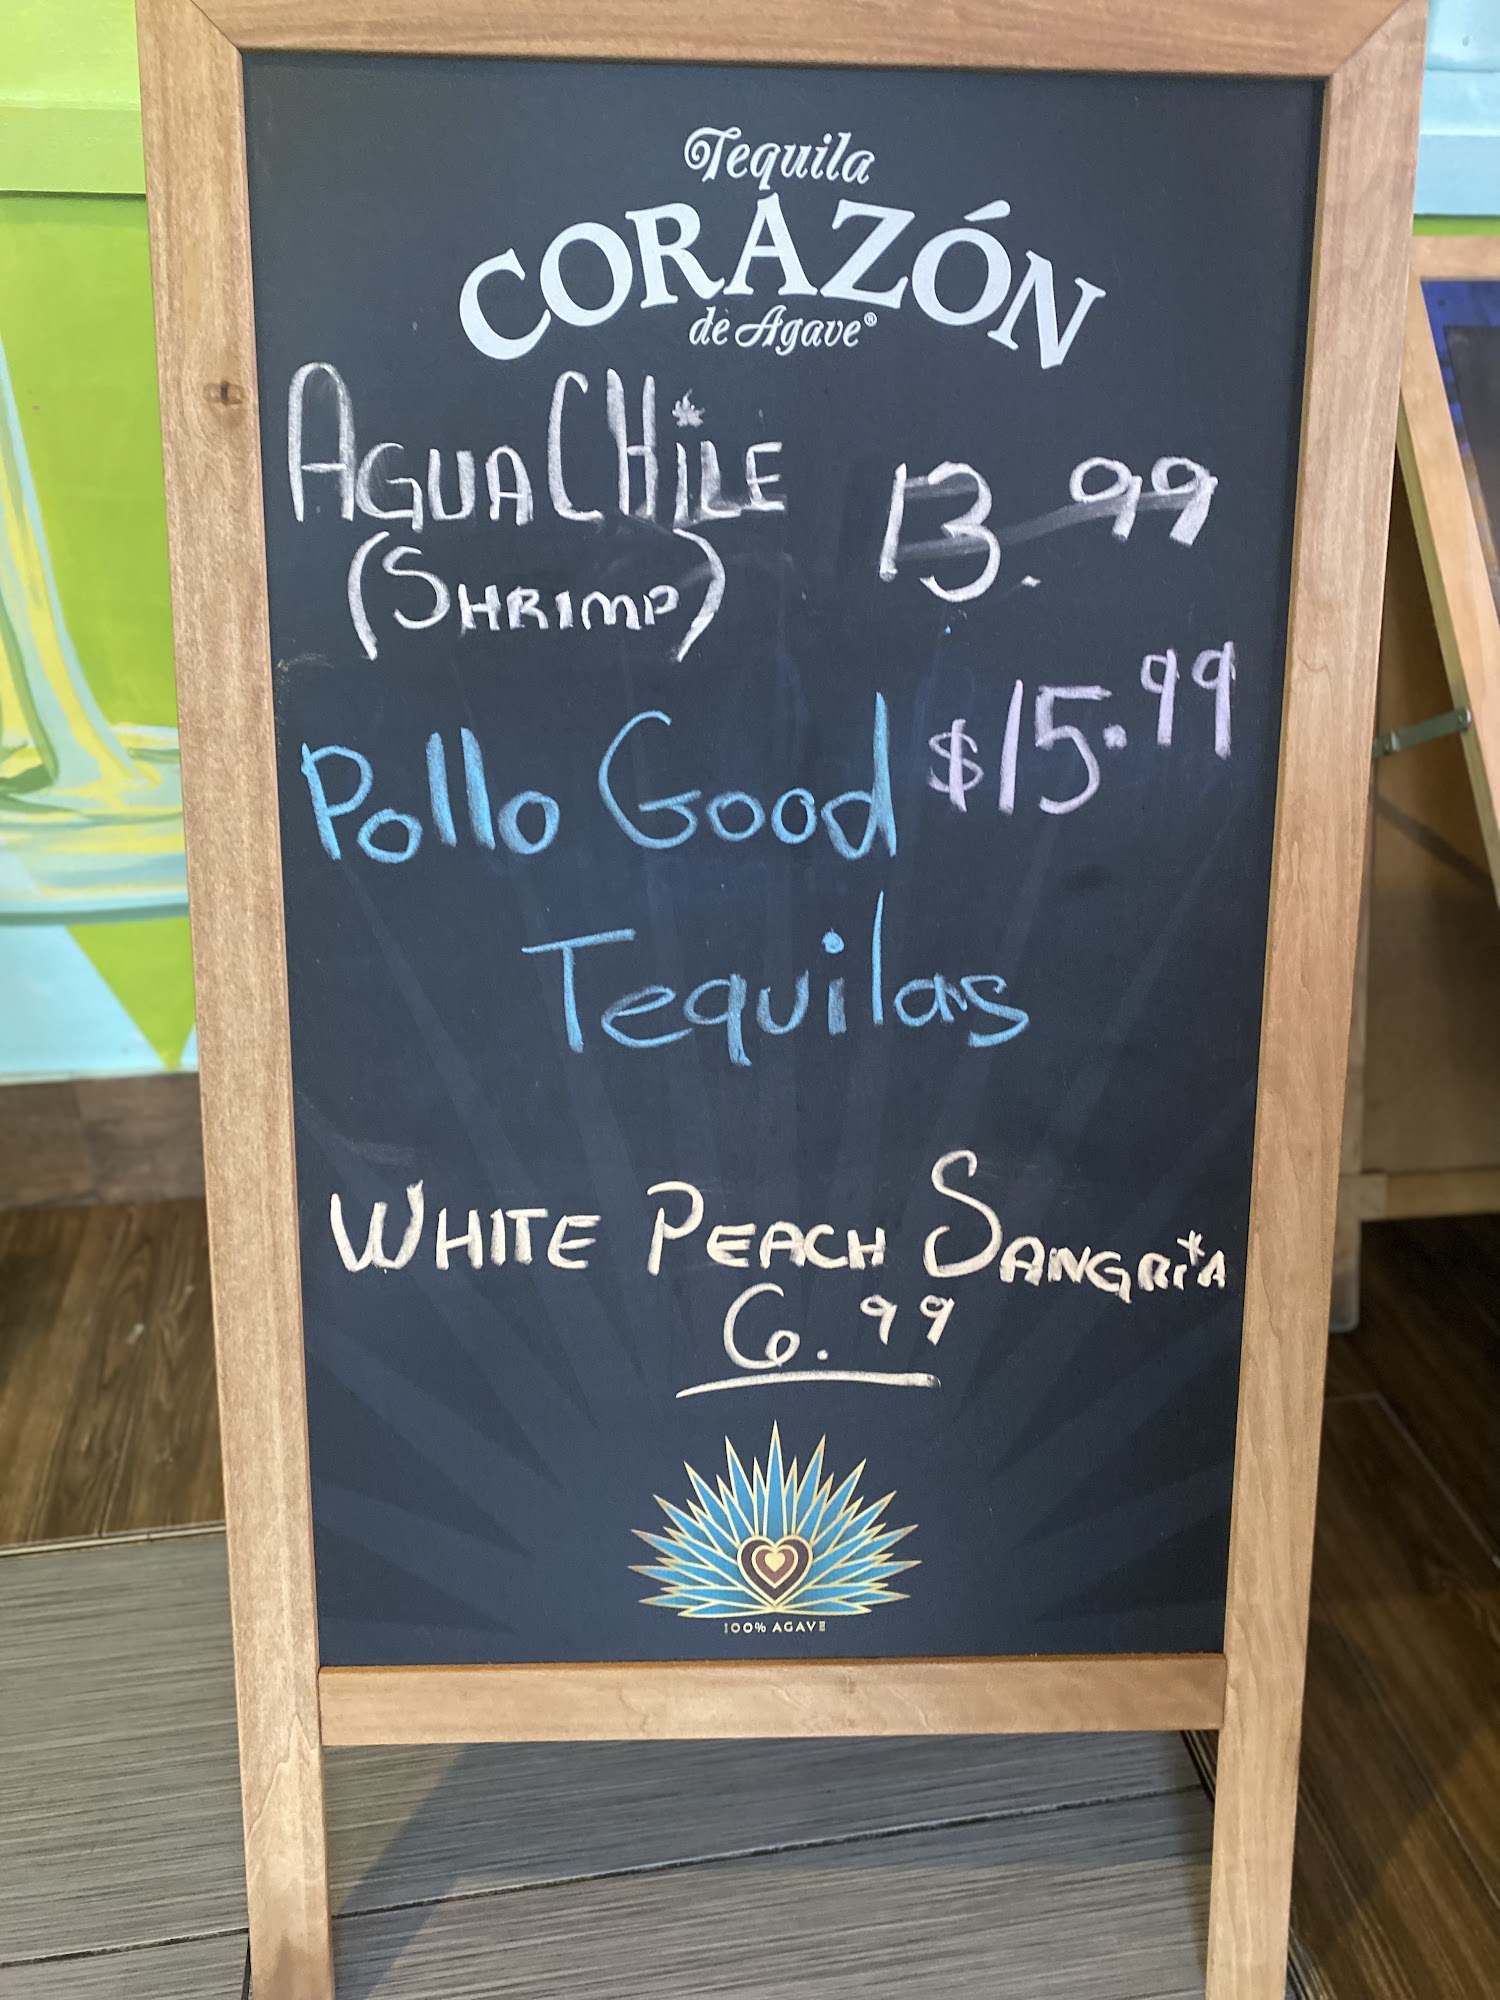 Tequila
CORAZÓN
de Agave®
AGUACHILE 13.99
(SHRIMP)
Pollo Good $15.99
Tequilas
WHITE PEACH SANGRIA
6.99
100% AGAVE